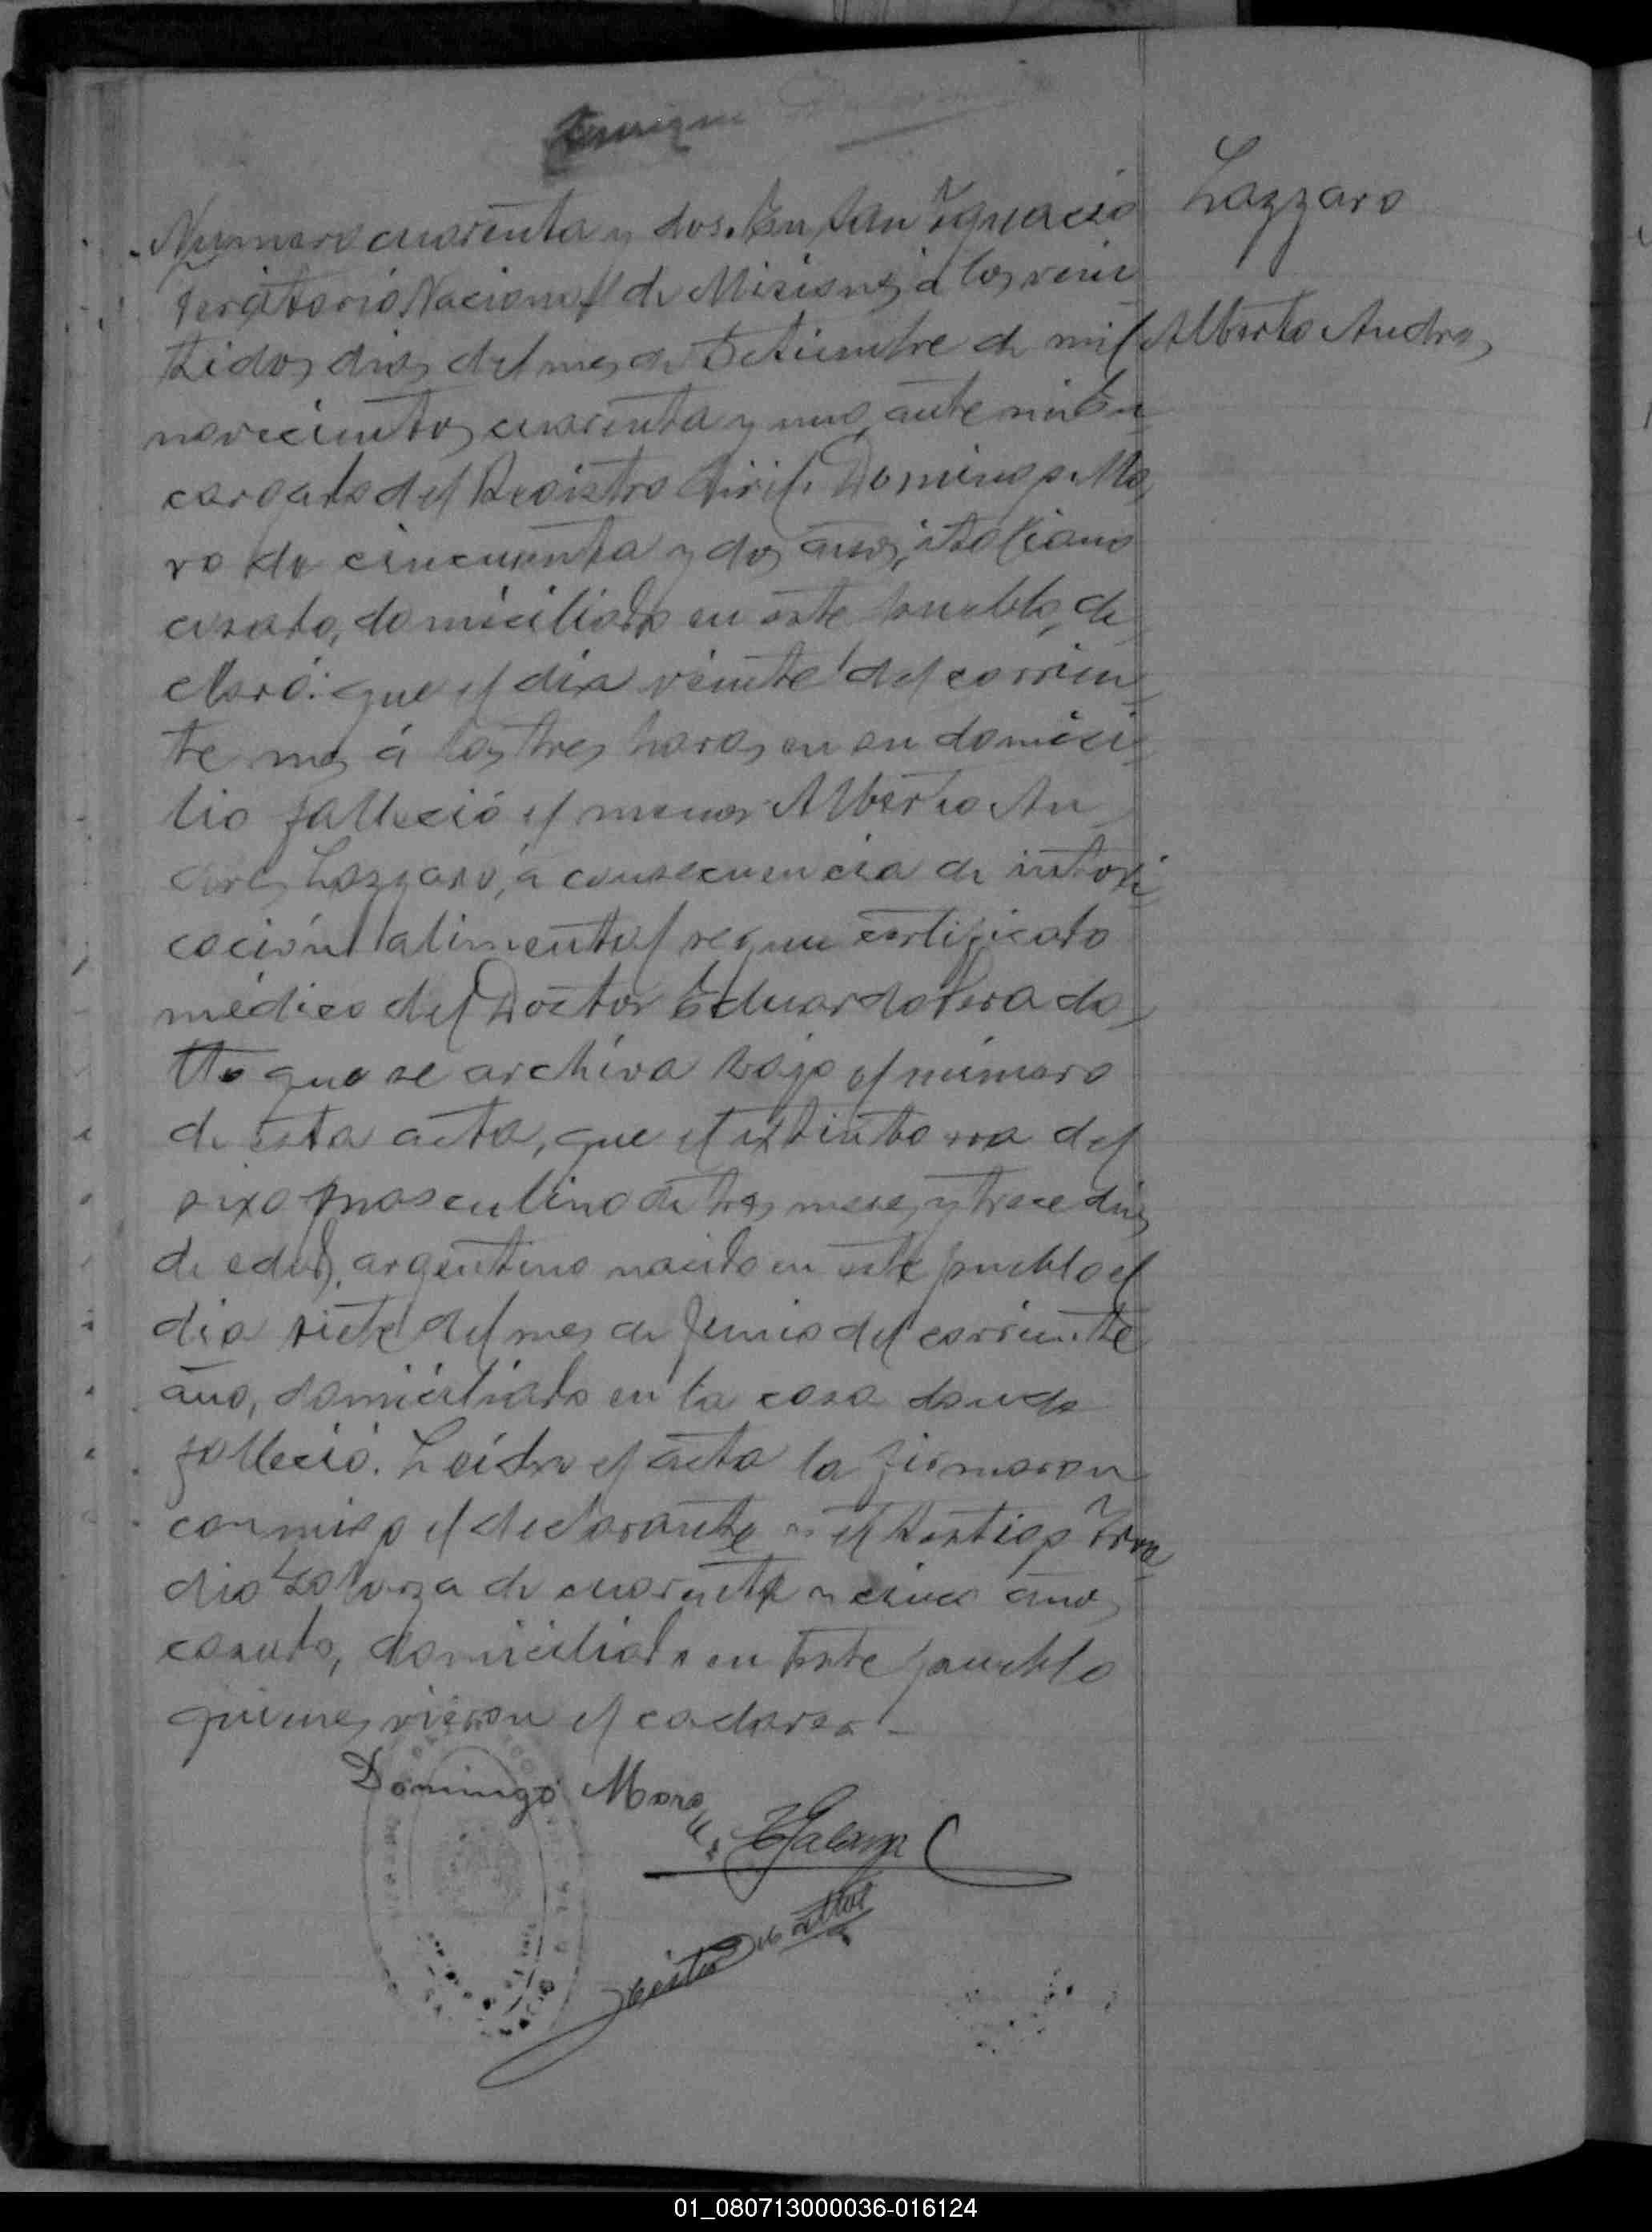 Lazzaro
Alberto Andres
Numero cuarenta y dos. En San Ignacio
Territorio Nacional de Misiones, a los vein
tidos dias del mes de Setiembre de mil
novecientos cuarenta y uno, ante mi En
cargado del Registro Civil, Domingo Mo
ro de cincuenta y dos años, italiano
casado, domiciliado en este pueblo, de
claró: que el dia veinte del corrien
te mes á las tres horas en su domici
lio falleció el menor Alberto An
dres Lazzaro, a consecuencia de intoxi
cación alimental segun certificado
médico del Doctor Eduardo
que se archiva bajo el número
de esta acta, que el extinto era del
sexo masculino de tres meses y trece dias
de edad, argentino nacido en este pueblo el
dia siete del mes de Junio del corriente
año, domiciliado en la casa donde
falleció. Leida el acta la firmaron
conmigo el declarante y el testigo
de cuarenta y cinco años
casado, domiciliado en este pueblo
quienes vieron el cadaver.-
Domingo Moro
01_080713000036-016124